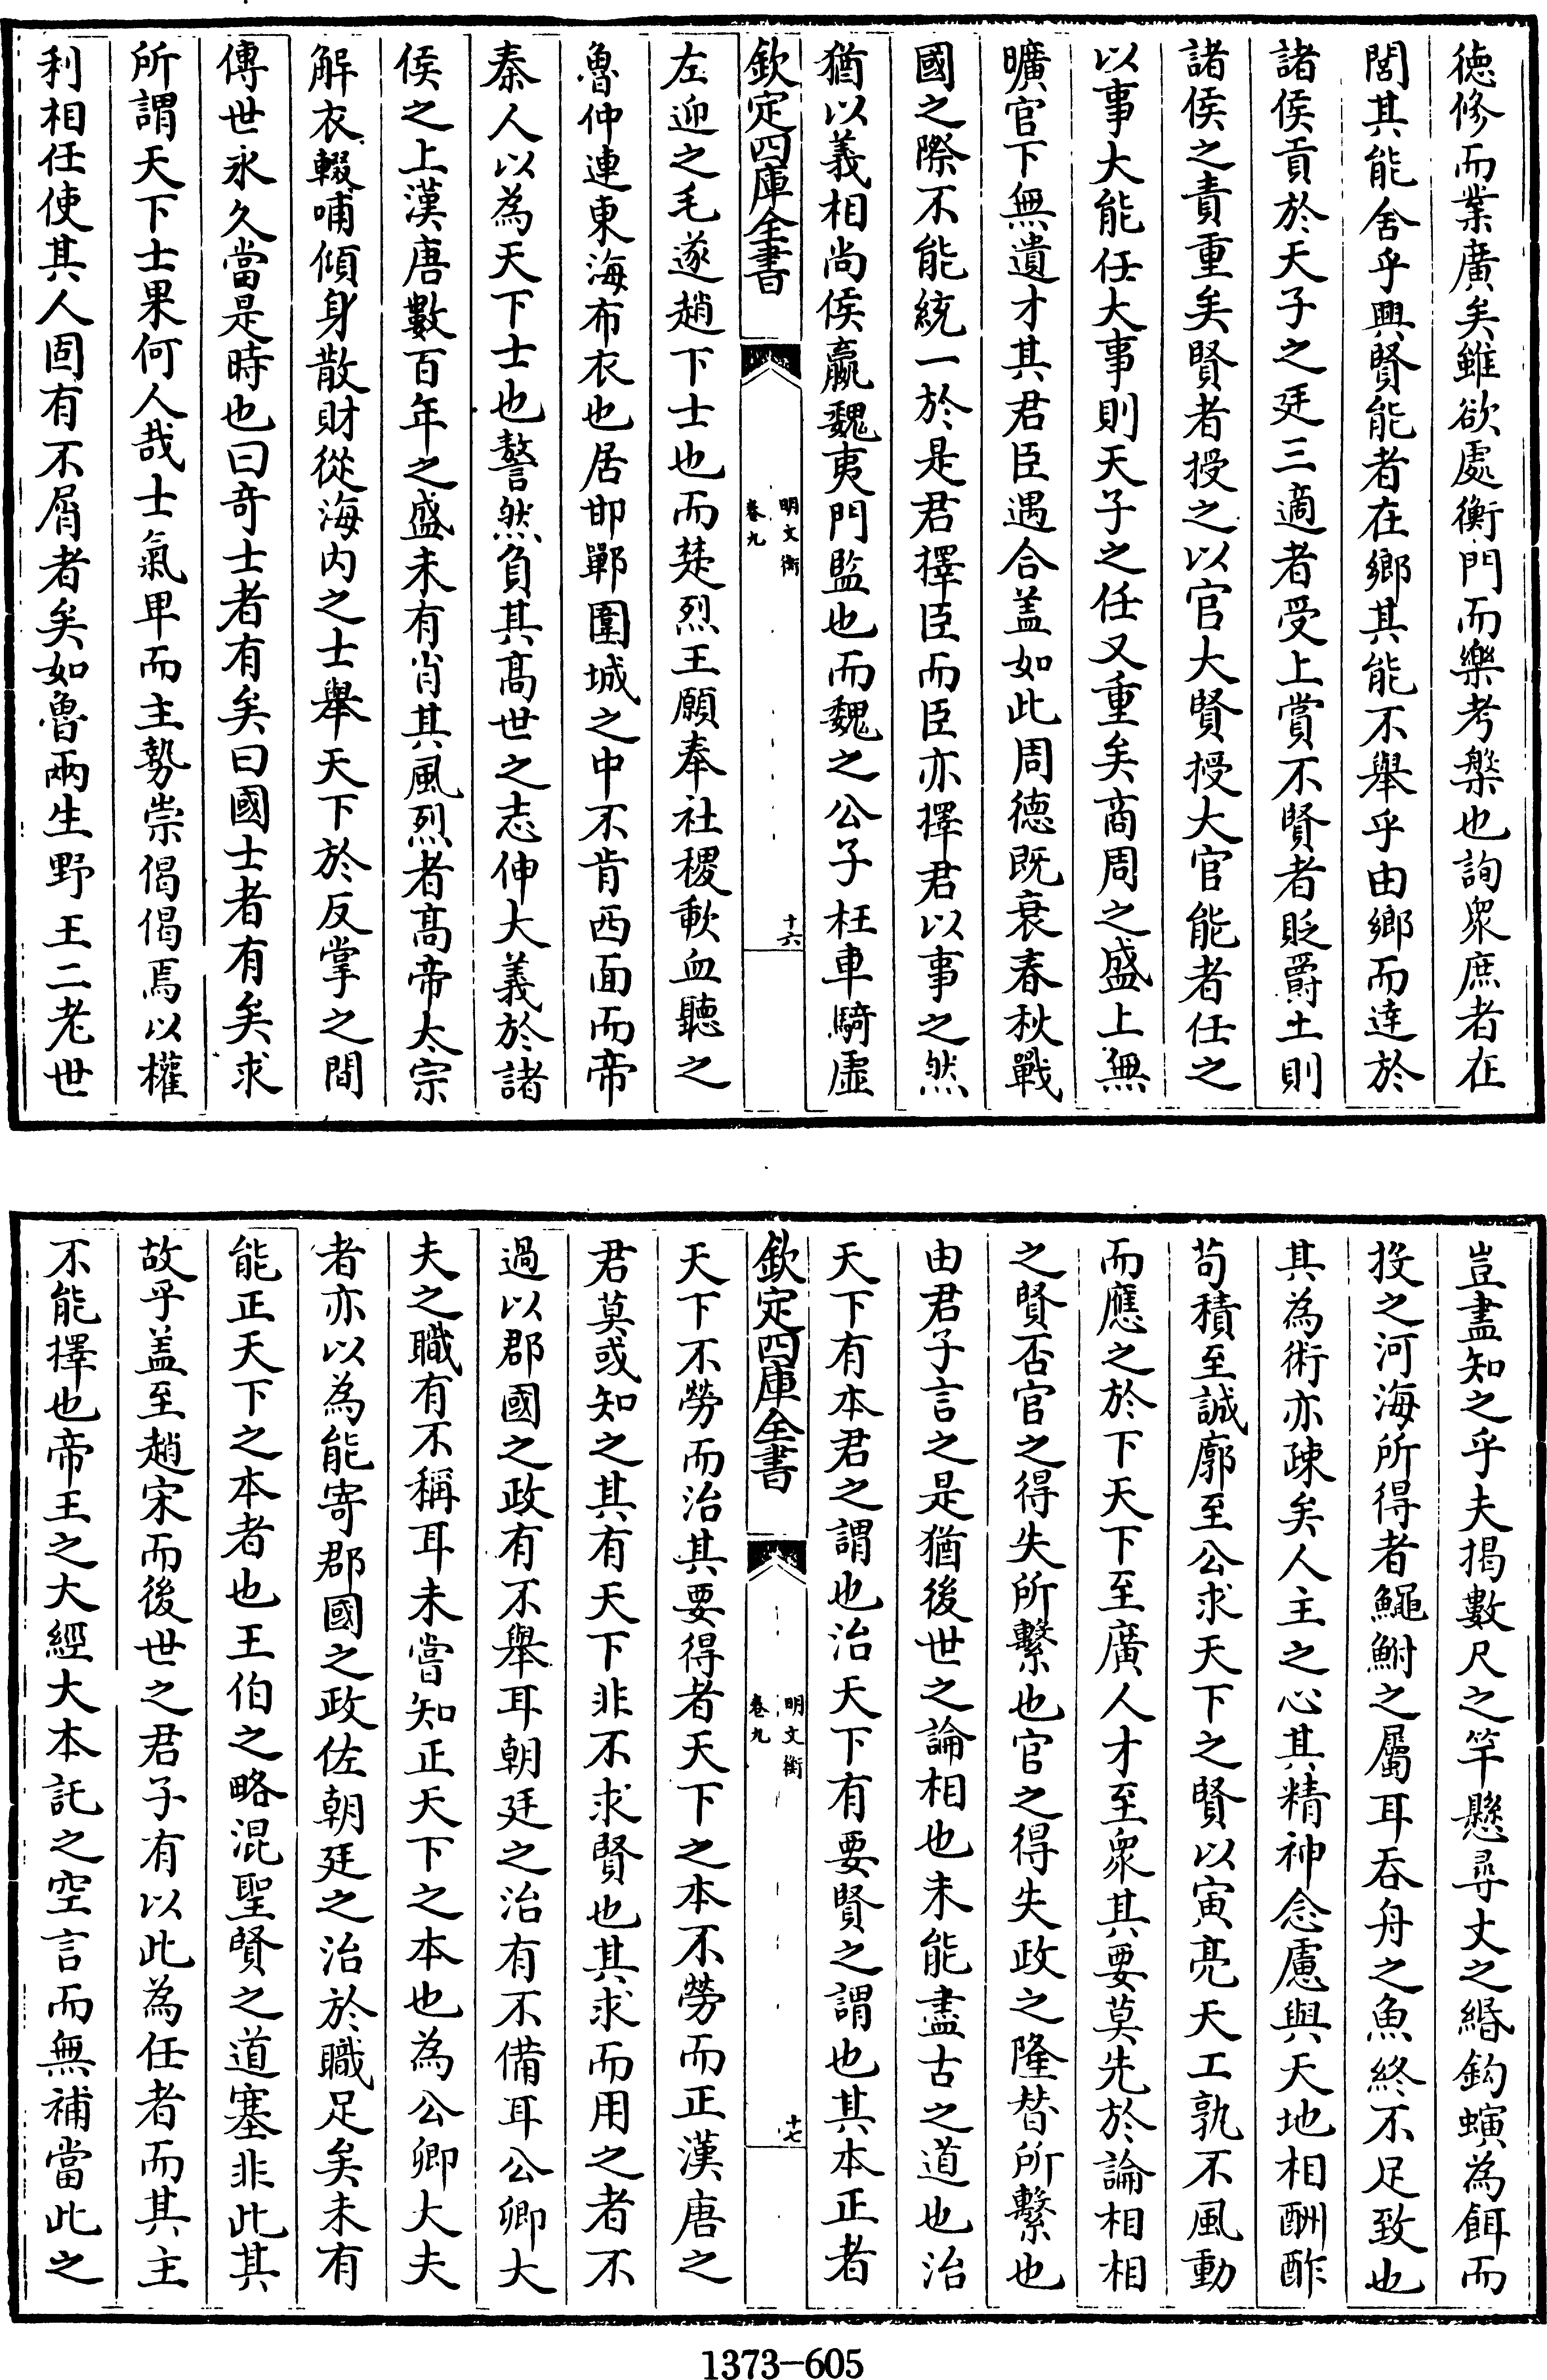 德修而業廣矣雖欲處衡門而樂考槃也詢衆庶者在
閭其能舍乎興賢能者在鄉其能不舉乎由鄉而逹於
諸侯貢於天子之廷三適者受上賞不賢者貶爵土則
諸侯之責重矣賢者授之以官大賢授大官能者任之
以事大能任大事則天子之任又重矣商周之盛上無
曠官下無遺才其君臣遇合盖如此周德既衰春秋戰
國之際不能統一於是君擇臣而臣亦擇君以事之然
猶以義相尚侯嬴魏夷門監也而魏之公子枉車騎虛
欽定四庫全書
明文衡
卷九
十六
左迎之毛遂趙下士也而楚烈王願奉社稷歃血聽之
魯仲連東海布衣也居邯鄲圍城之中不肯西面而帝
秦人以為天下士也謷然負其髙世之志伸大義於諸
侯之上漢唐數百年之盛未有肖其風烈者髙帝太宗
解衣輟哺傾身散財從海内之士舉天下於反掌之間
傳世永久當是時也曰奇士者有矣曰國士者有矣求
所謂天下士果何人哉士氣卑而主勢崇偈偈焉以權
利相任使其人固有不屑者矣如魯兩生野王二老世
豈盡知之乎夫揭數尺之竿懸尋丈之緡鈎螾為餌而
投之河海所得者鱦鮒之屬耳吞舟之魚終不足致也
其為術亦疎矣人主之心其精神念慮與天地相酬酢
苟積至誠廓至公求天下之賢以寅亮天工孰不風動
而應之於下天下至廣人才至衆其要莫先於論相相
之賢否官之得失所繫也官之得失政之隆替所繫也
由君子言之是猶後世之論相也未能盡古之道也治
天下有本君之謂也治天下有要賢之謂也其本正者
欽定四庫全書
明文衡
卷九
十七
天下不勞而治其要得者天下之本不勞而正漢唐之
君莫或知之其有天下非不求賢也其求而用之者不
過以郡國之政有不舉耳朝廷之治有不備耳公卿大
夫之職有不稱耳未嘗知正天下之本也為公卿大夫
者亦以為能寄郡國之政佐朝廷之治於職足矣未有
能正天下之本者也王伯之略混聖賢之道塞非此其
故乎盖至趙宋而後世之君子有以此為任者而其主
不能擇也帝王之大經大本託之空言而無補當此之
1373-605